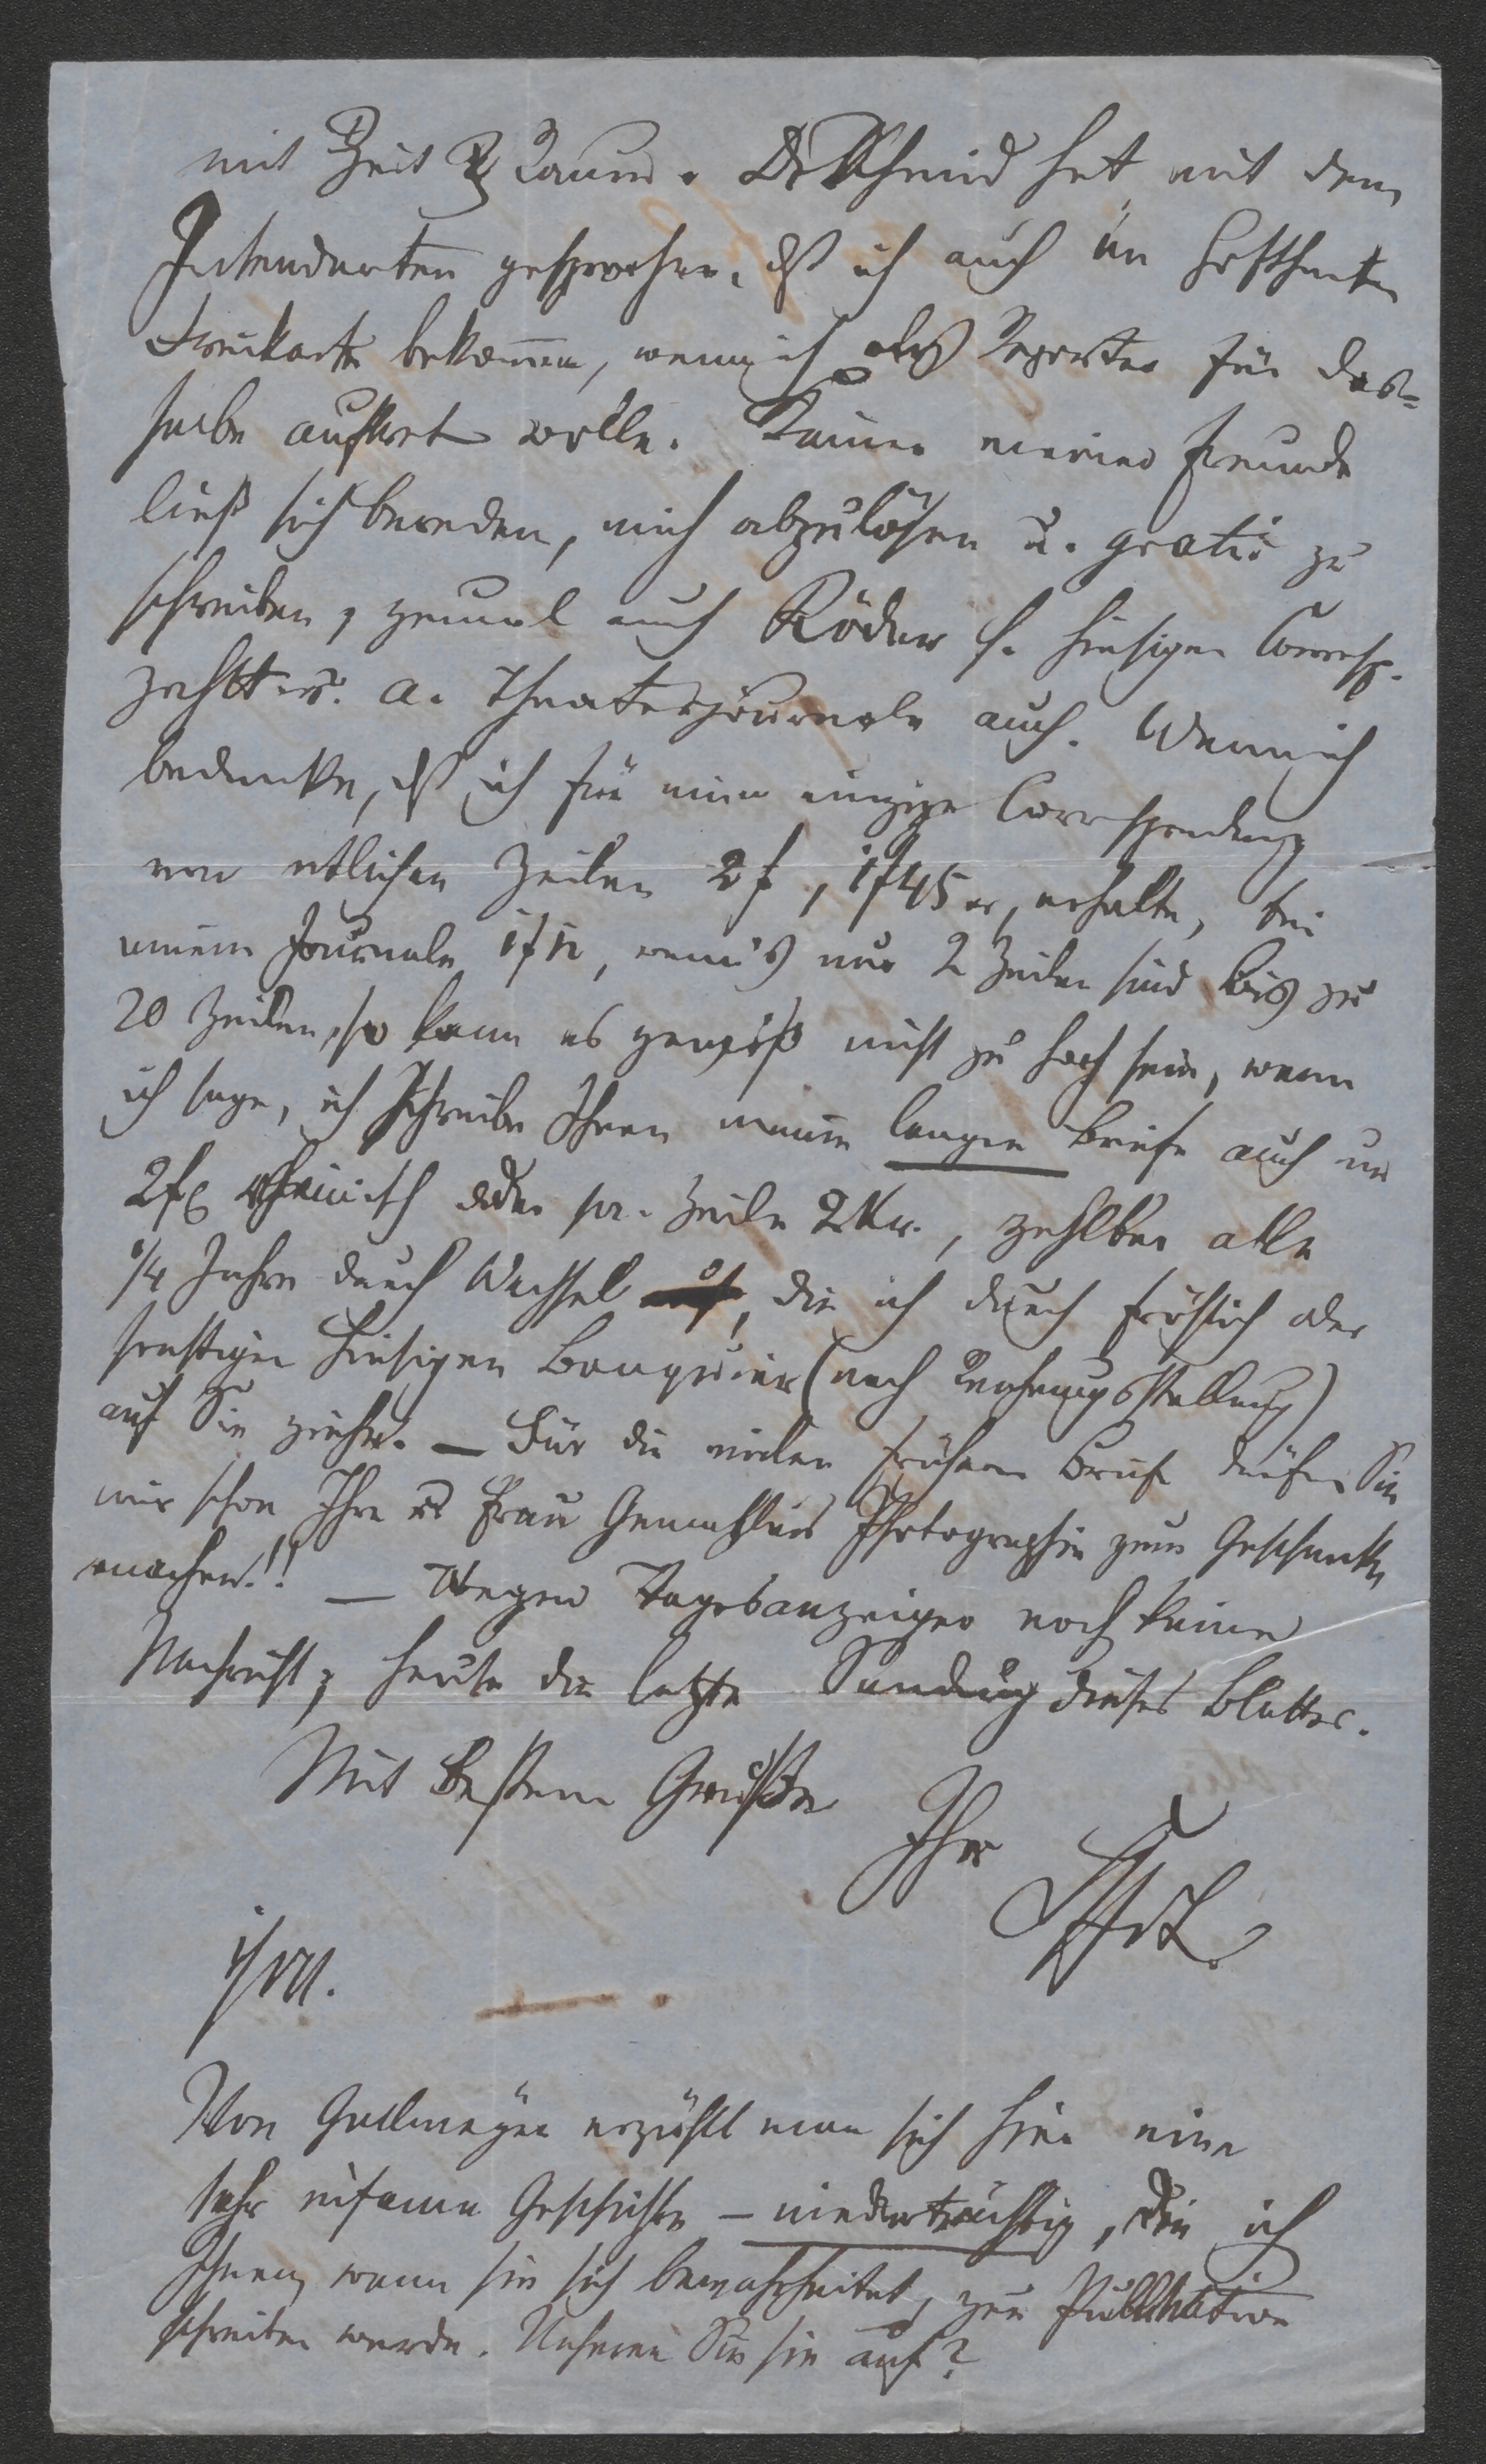 mit Zeit & Raum. Dr Schmid hat mit dem
Intendanten gesprochen, dß ich auch im Hoftheater
Freikarte bekomme, wenn ich als Reporter für das-
selbe auftret wolle. Keiner meiner Freunde
ließ sich bereden, mich abzulösen u. gratis zu
schreiben, zumal auch Röder s. hiesigen Corresp.
zahlt u. a. Theaterjournale auch. Wenn ich
bedenke, dß ich für eine einzige Correspondenz
von etlichen Zeilen 2 f, 1 f 45 xr, erhalte, bei
einem Journale 1 f 12, wenn's nur 2 Zeilen sind bis zu
20 Zeilen, so kann es gewiß nicht zu hoch sein, wenn
ich sage, ich schreibe Ihnen meine langen Briefe auch um
2 f rheinisch oder pr. Zeile 2 Kr., zahlbar alle
1/4 Jahre durch Wechsel, die ich durch Fröhlich oder
sonstigen hiesigen Banquier (nach Rechnungsstellung)
auf Sie ziehe. — Für die vielen früheren Briefe dürfen Sie
mir schon Ihre u Frau Gemahlin's Photographie zum Geschenke
machen!! — Wegen Tagesanzeiger noch keine
Nachricht; heute die letzte Sendung dieses Blattes.
Mit bestem Gruße
Ihr
1/VII.
Von Gallmeyer erzählt man sich hier eine
sehr infame Geschichte – niederträchtig, die ich
Ihnen, wenn sie sich bewahrheitet, zur Publikation
schreiben werde. Nehmen Sie sie auf?